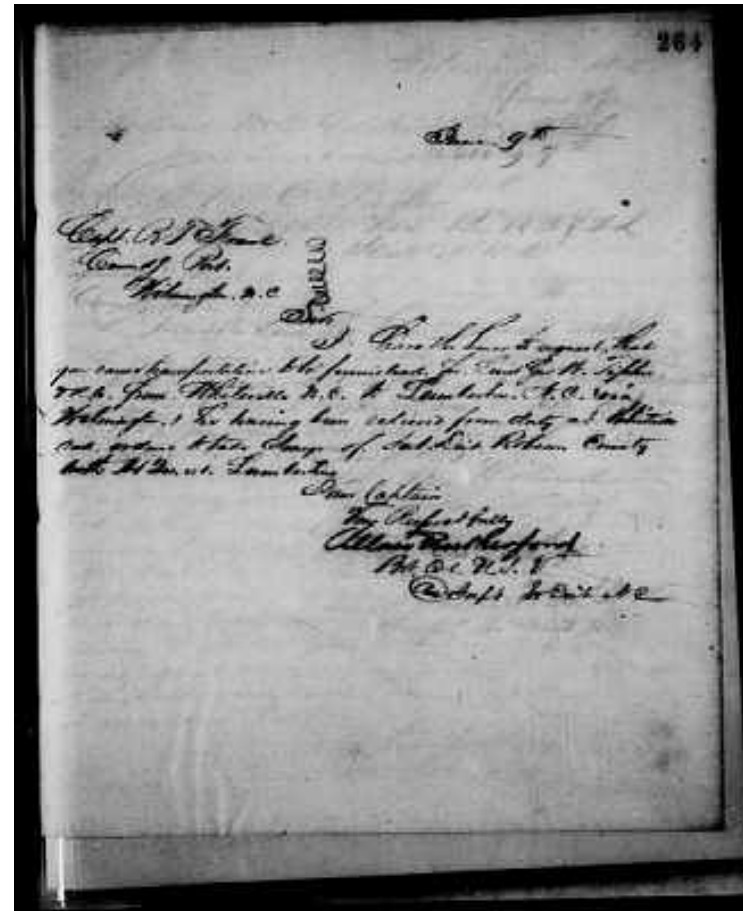 264
June 9th
Capt. R. T. Frank
Comdg Post.
Wilmington, N.C
Sir
I have the honor to request, that
you cause transportation to be furnished for
from Whiteville N.C. to Lumberton N.C. via
Wilmington, he having been relieved from duty at Whiteville
and ordered to take charge of Sub Dist Robeson County
with Hd Qrs. at Lumberton
I am Captain
Very Respectfully
Allan Rutherford
Bvt Col U.S.A
N.C